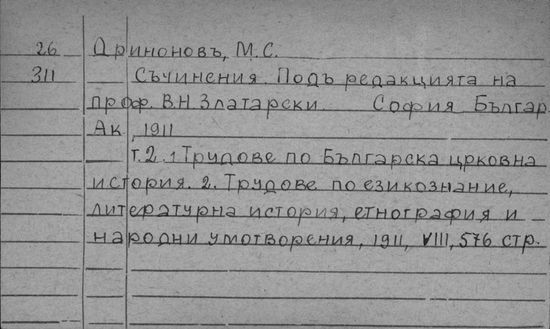 26 Дриноновъ, М.С.
311 Съчинения. Подъ редакцията на
проф. В.Н. Златарски София Българ
Ак, 1911
т.2.1 Трудове по Българска црковна
история. 2. Трудове по езикознание,
литературна история, етнография и
народни умотворения, 1911, VIII, 576 стр.